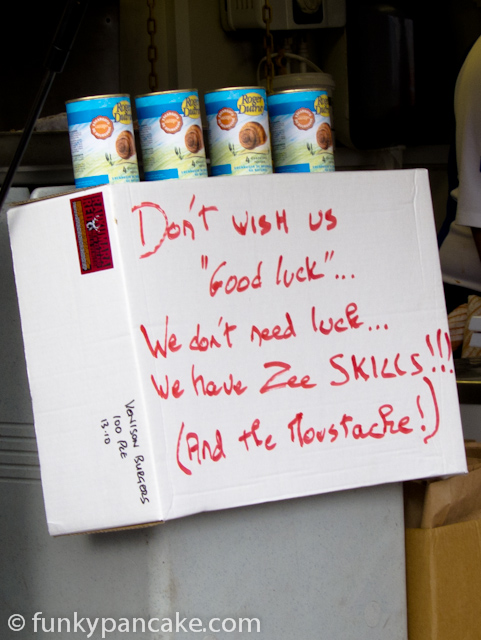 Roger Dutruy
Roger Dutruy
Roger Dutruy
Roger Dutruy
Don't wish us
"Good luck"...
We don't need luck...
We have Zee SKILLS!!!
(And the Moustache!)
VENISON BURGERS
100 PCE
13.10
© funkypancake.com